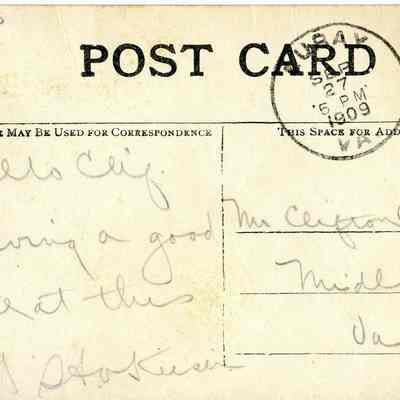 POST CARD
LURAY
SEP
27
5 PM
1909
VA
MAY BE USED FOR CORRESPONDENCE
THIS SPACE FOR ADD
llo Clif.
ving a good
at this
Mr Clifton
Midl
Va